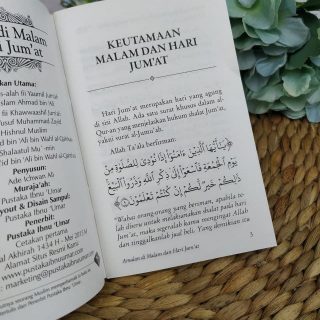 di Malam
Jum'at
kan Utama:
as-alah fii Yaumil Jum'ah
Islam Ahmad bin Ali
Fii Khawwaashil Jum'ah
Yusuf Muhammad Zaid
Hishnul Muslim
'id bin 'Ali bin Wahf al-Qahthani
Shalaatul Mu'
'id bin 'Ali bin Wahf al-Qahthani
Penyusun:
Ade Ichwan Ali
Muraja'ah:
Pustaka Ibnu 'Umar
Layout & Disain Sampul:
Pustaka Ibnu 'Umar
Penerbit:
Pustaka Ibnu 'Umar
Cetakan pertama
Akhirah 1434 H - Mei 2013 M
Alamat Situs Resmi Kami
www.pustakaibnuumar.com
: marketing@pustakaibnuumar.com
KEUTAMAAN
MALAM DAN HARI
JUM'AT
Hari Jum'at merupakan hari yang agung
di sisi Allah. Ada satu surat khusus dalam al-
Qur-an yang menjelaskan hukum shalat Jum'at,
yakni surat al-Jumu'ah.
Allah Ta'ala berfirman:
يَٰٓأَيُّهَا ٱلَّذِينَ ءَامَنُوٓا۟ إِذَا نُودِىَ لِلصَّلَوٰةِ مِن
يَوْمِ ٱلْجُمُعَةِ فَٱسْعَوْا۟ إِلَىٰ ذِكْرِ ٱللَّهِ وَذَرُوا۟ ٱلْبَيْعَ
ذَٰلِكُمْ خَيْرٌ لَّكُمْ إِن كُنتُمْ تَعْلَمُونَ
"Wahai orang-orang yang beriman, apabila te-
lah diseru untuk melaksanakan shalat pada hari
Jum'at, maka segeralah kamu mengingat Allah
dan tinggalkanlah jual beli. Yang demikian itu
Amalan di Malam dan Hari Jum'at
3